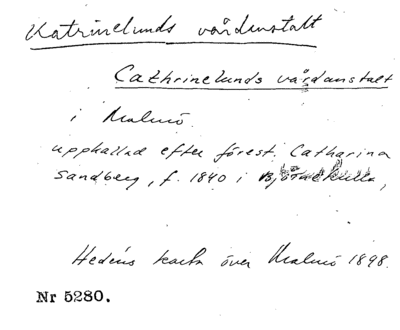 Katrinelunds vårdanstalt
Cathrinelunds vårdanstalt
i Malmö.
uppkallad efter förest. Catharina
Sandberg, f. 1840 i Björnekulla,
Hedéns karta över Malmö 1898.
Nr 5280.